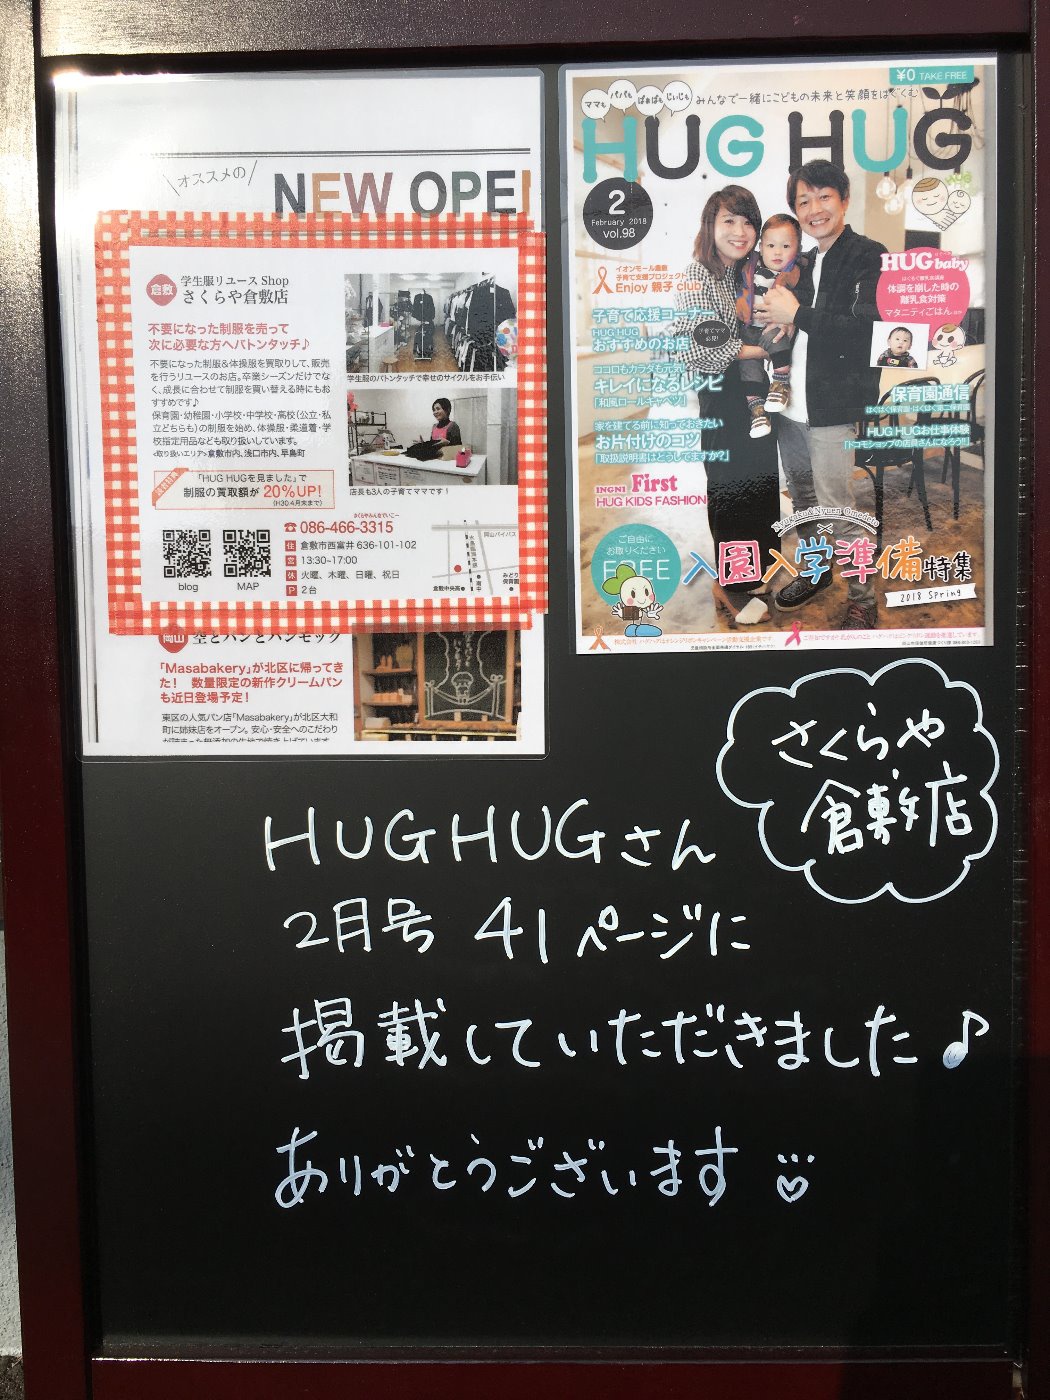 オススメの
NEW OPE
倉敷
学生服リユース Shop
さくらや倉敷店
不要になった制服を売って
次に必要な方へバトンタッチ♪
不要になった制服&体操服を買取りして、販売
を行うリユースのお店。卒業シーズンだけでな
く、成長に合わせて制服を買い替える時にもお
すすめです♪
保育園・幼稚園・小学校・中学校・高校(公立・私
立どちらも)の制服を始め、体操服・柔道着・学
校指定用品なども取り扱いしています。
<取り扱いエリア>倉敷市内、浅口市内、早島町
学生服のバトンタッチで幸せのサイクルをお手伝い
店長も3人の子育てママです!
「HUG HUGを見ました」で
制服の買取額が 20%UP!
(H30.4月末まで)
blog
MAP
086-466-3315
住 倉敷市西富井 636-101-102
営 13:30~17:00
休 火曜、木曜、日曜、祝日
P 2台
岡山バイパス
倉敷中央高
岡山
空とパンとパンセック
「Masabakery」が北区に帰ってき
た! 数量限定の新作クリームパン
も近日登場予定!
東区の人気パン店「Masabakery」が北区大和
町に姉妹店をオープン。安心・安全へのこだわり
¥0 TAKE FREE
ママも パパも ばぁばも じぃじも みんなで一緒にこどもの未来と笑顔をはぐくむ
HUG HUG
2
February 2018
vol.98
イオンモール倉敷
子育て支援プロジェクト
Enjoy 親子 club
子育て応援コーナー
HUG HUG
おすすめのお店
子育てママ
必見!
ココロもカラダも元気!
キレイになるレシピ
「和風ロールキャベツ」
家を建てる前に知っておきたい
お片付けのコツ
「取扱説明書はどうしてますか?」
INGNI First
HUG KIDS FASHION
HUG baby
はぐはぐ離乳食講座
体調を崩した時の
離乳食対策
マタニティごはん
保育園通信
はぐはぐ保育園・はぐはぐ第二保育園
HUG HUGお仕事体験
「ドコモショップの店員さんになろう!!」
ご自由に
お取りください
FREE
入園入学準備特集
2018 Spring
さくらや
倉敷店
HUGHUGさん
2月号 41ページに
掲載していただきました♪
ありがとうございます